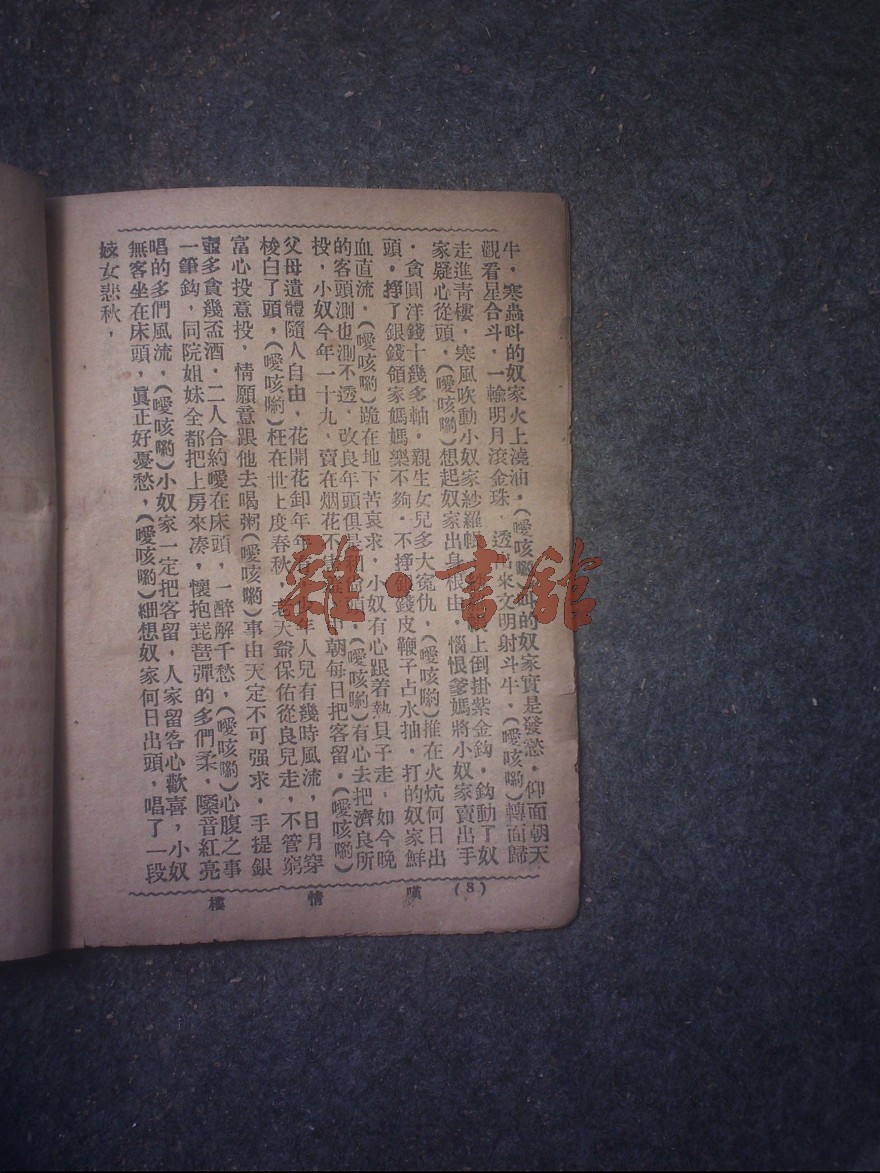 牛，寒蟲呌的奴家火上澆油，（噯咳喲）呌的奴家實是發愁，仰面朝天
觀看星合斗，一輪明月滾金珠，透出來文明射斗牛，（噯咳喲）轉面歸
走進青樓，寒風吹動小奴家紗羅帳上倒掛紫金鈎，鈎動了奴
家疑心從頭，（噯咳喲）想起奴家出身根由，惱恨爹媽將小奴家賣出手
，貪圓洋錢十幾多軸，親生女兒多大冤仇，（噯咳喲）推在火炕何日出
頭，掙了銀錢領家媽媽樂不夠，不掙銀錢皮鞭子占水抽，打的奴家鮮
血直流，（噯咳喲）跪在地下苦哀求，小奴有心跟着熱貝子走，如今晚
的客頭測也測不透，改良年頭俱是（噯咳喲）有心去把濟良所
投，小奴今年一十九，賣在烟花不朝每日把客留，（噯咳喲）
父母遺體隨人自由，花開花卸年年人兒有幾時風流，日月穿
梭白了頭，（噯咳喲）枉在世上度春秋，老天爺保佑從良兒走，不管窮
富心投意投，情願意跟他去喝粥（噯咳喲）事由天定不可强求，手提銀
壺多貪幾盃酒，二人合約噯在床頭，一醉解千愁，（噯咳喲）心腹之事
一筆鈎，同院姐妹全都把上房來凑，懷抱琵琶彈的多們柔，嗓音紅亮
唱的多們風流，（噯咳喲）小奴家一定把客留，人家留客心歡喜，小奴
無客坐在床頭，眞正好憂愁，（噯咳喲）細想奴家何日出頭，唱了一段
妓女悲秋，
（8）
嘆情樓
雜·書舘